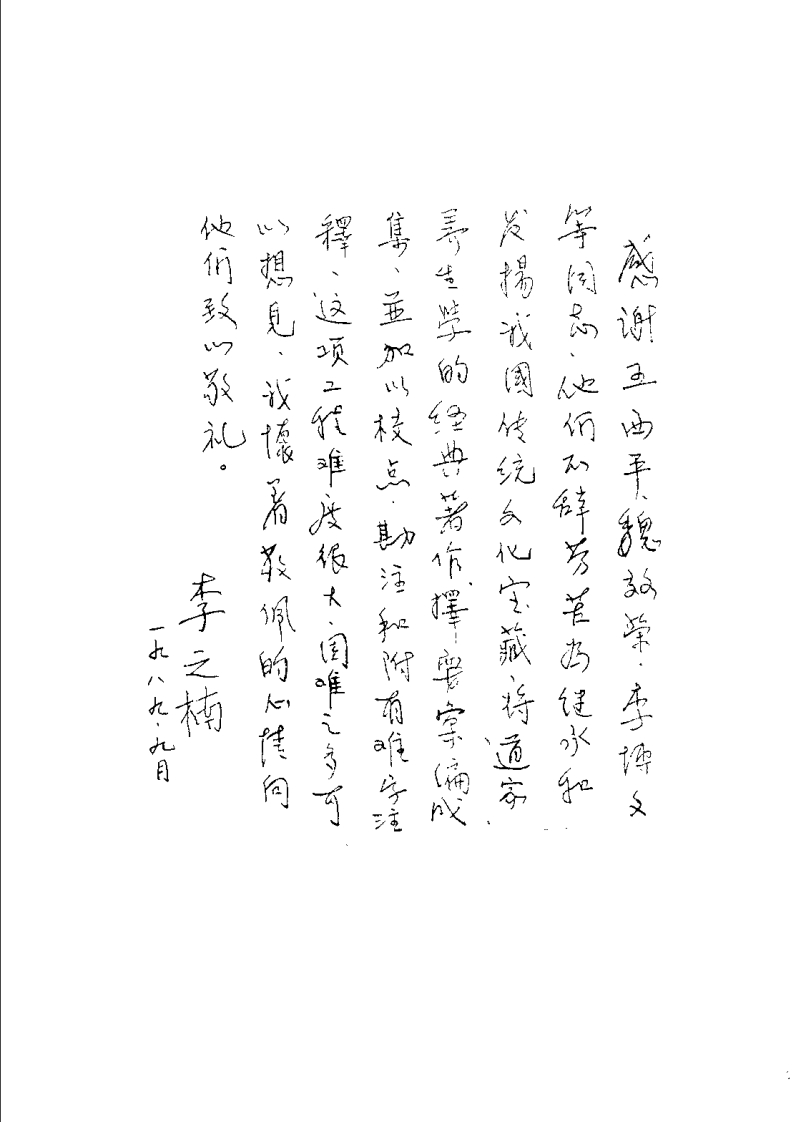 感谢王西平、魏效荣、李炳文
等同志、他们不辞劳苦为继承和
发揚我國传统文化宝藏、将道家
养生学的经典著作、擇要彙编成
集、並加以校点、勘注和附有难字注
釋、这项工程难度很大、困难之多可
以想見、我懷着敬佩的心情向
他们致以敬礼。
李之楠
一九八九、九月